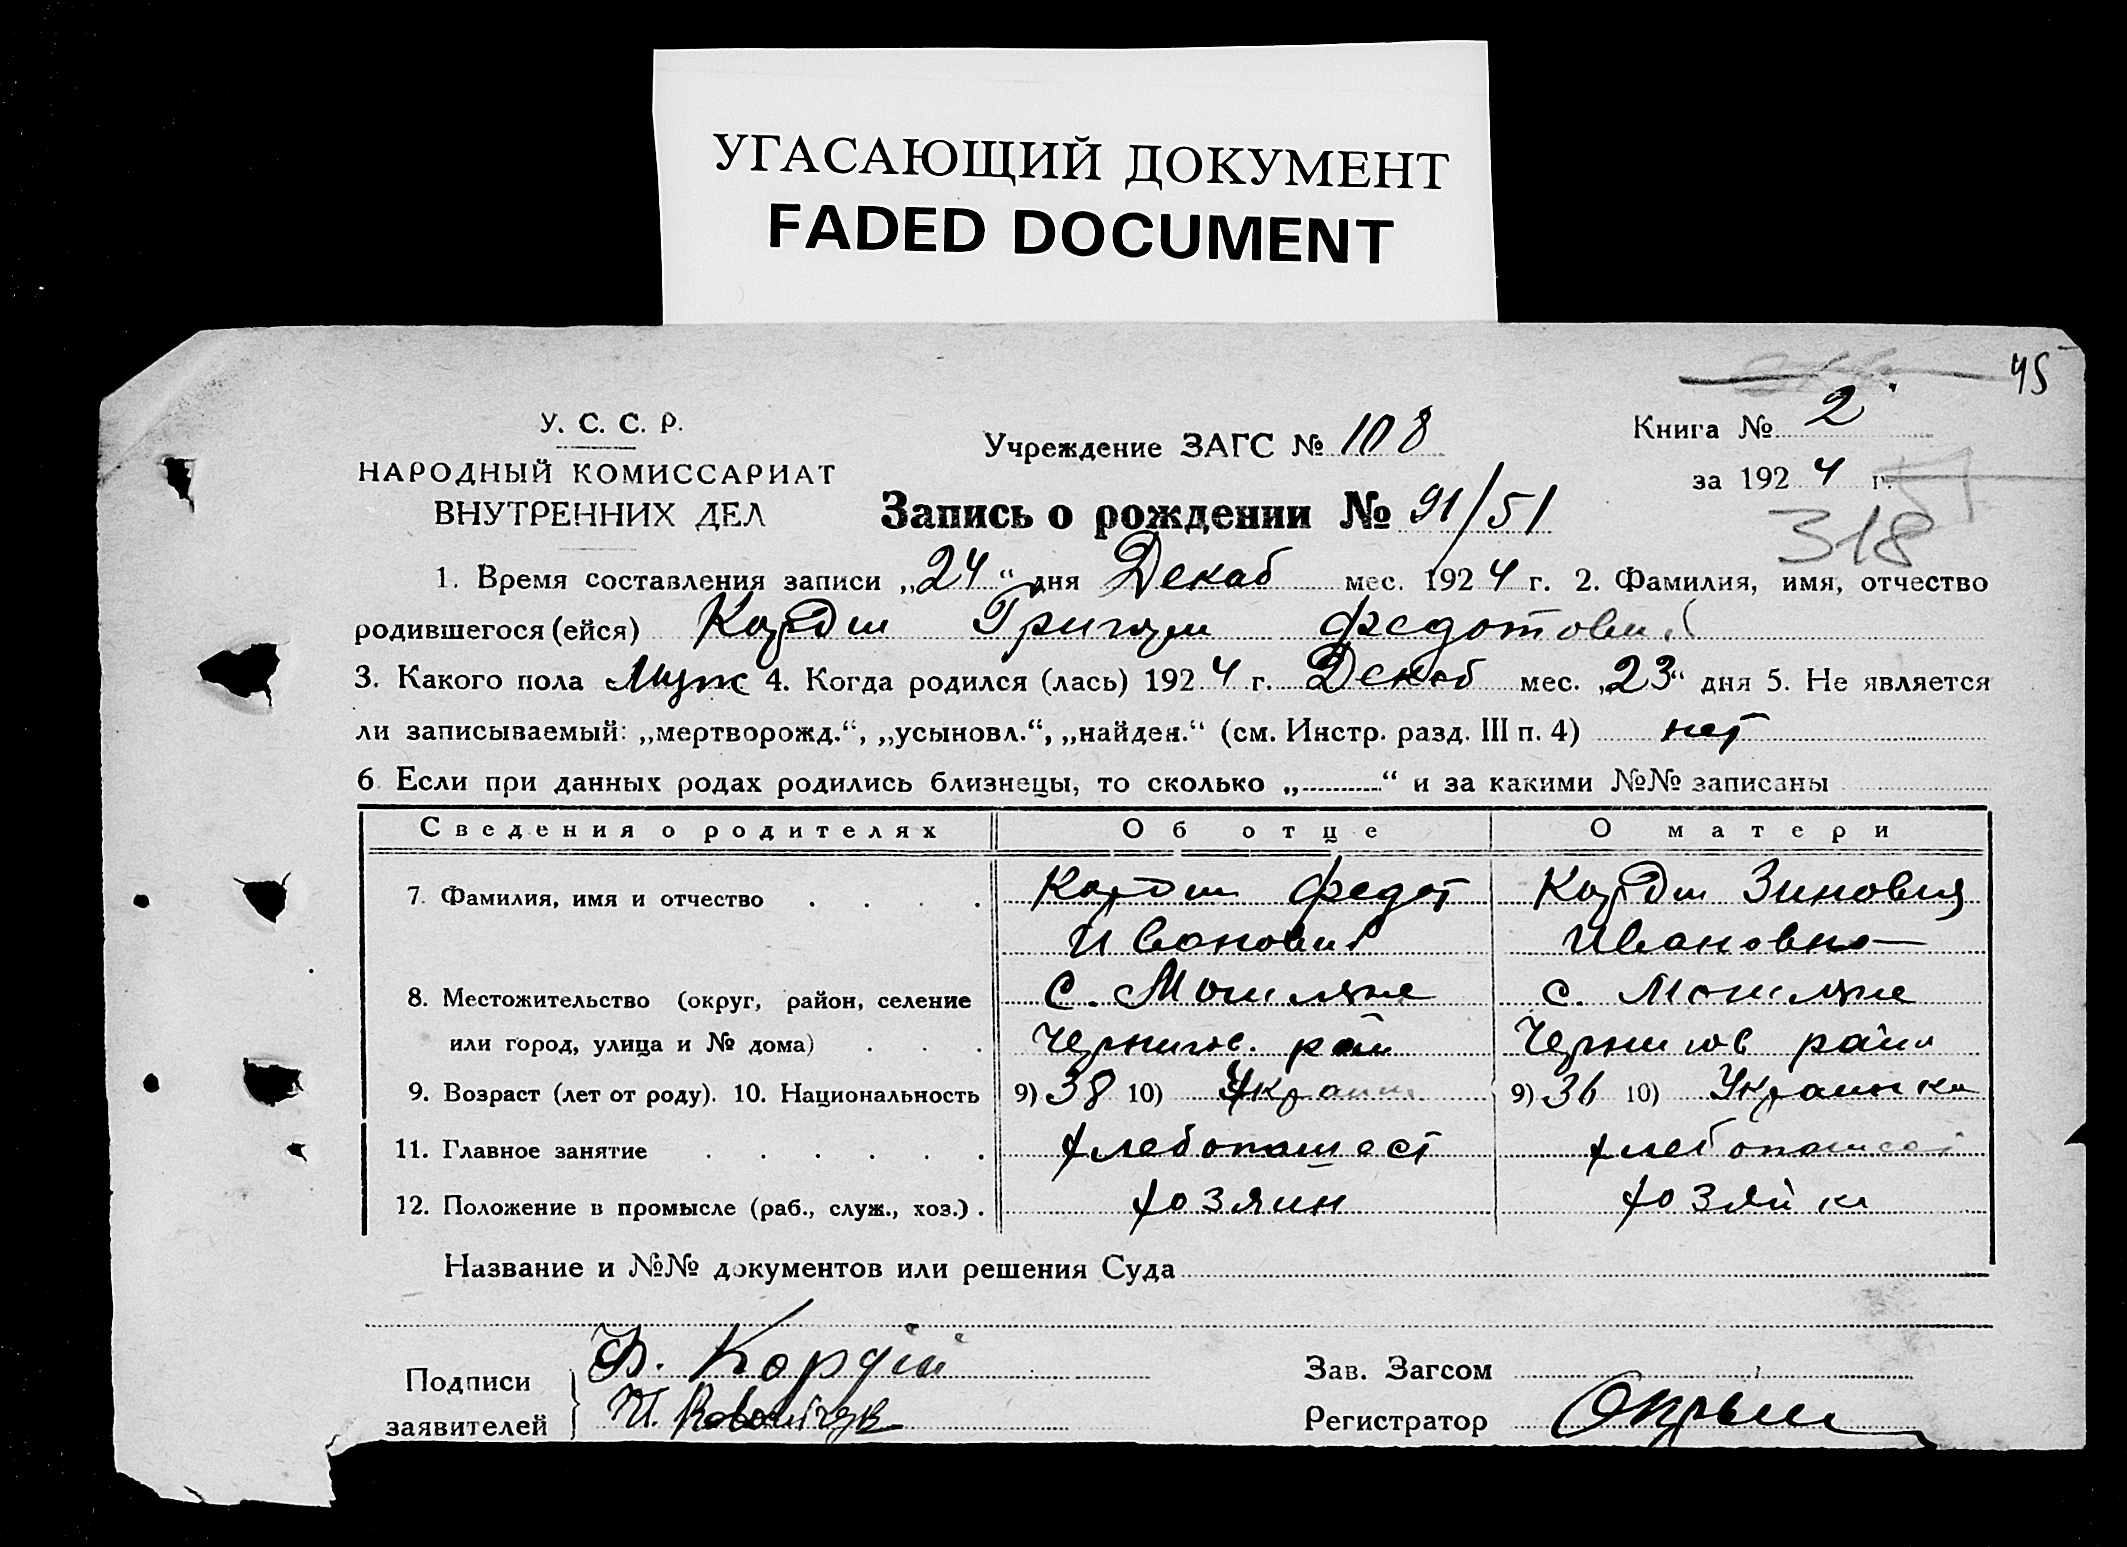 УГАСАЮЩИЙ ДОКУМЕНТ
FADED DOCUMENT
45
У. С. С. Р.
НАРОДНЫЙ КОМИССАРИАТ
ВНУТРЕННИХ ДЕЛ
Учреждение ЗАГС № 108
Книга № 2
за 1924 г.
Запись о рождении № 91/51
318
1. Время составления записи „24“ дня Декаб мес. 1924 г. 2. Фамилия, имя, отчество
родившегося (ейся) Кордии Григори Федотови
3. Какого пола Муж 4. Когда родился (лась) 1924 г. Декаб мес. „23“ дня 5. Не является
ли записываемый: „мертворожд.“, „усыновл.“, „найден.“ (см. Инстр. разд. III п. 4) нет
6. Если при данных родах родились близнецы, то сколько „..........“ и за какими №№ записаны
Сведения о родителях Об отце О матери
7. Фамилия, имя и отчество Кордии Федот Кордии Зиновия
Иванович Ивановна
8. Местожительство (округ, район, селение с. с.
или город, улица и № дома) Чернигов. рай Чернигов район
9. Возраст (лет от роду). 10. Национальность 9) 38 10) Украин 9) 36 10) Украинка
11. Главное занятие хлебопашест хлебопашест
12. Положение в промысле (раб., служ., хоз.) хозяин хозяйка
Название и №№ документов или решения Суда
Подписи Ф. Кордій Зав. Загсом
заявителей Регистратор